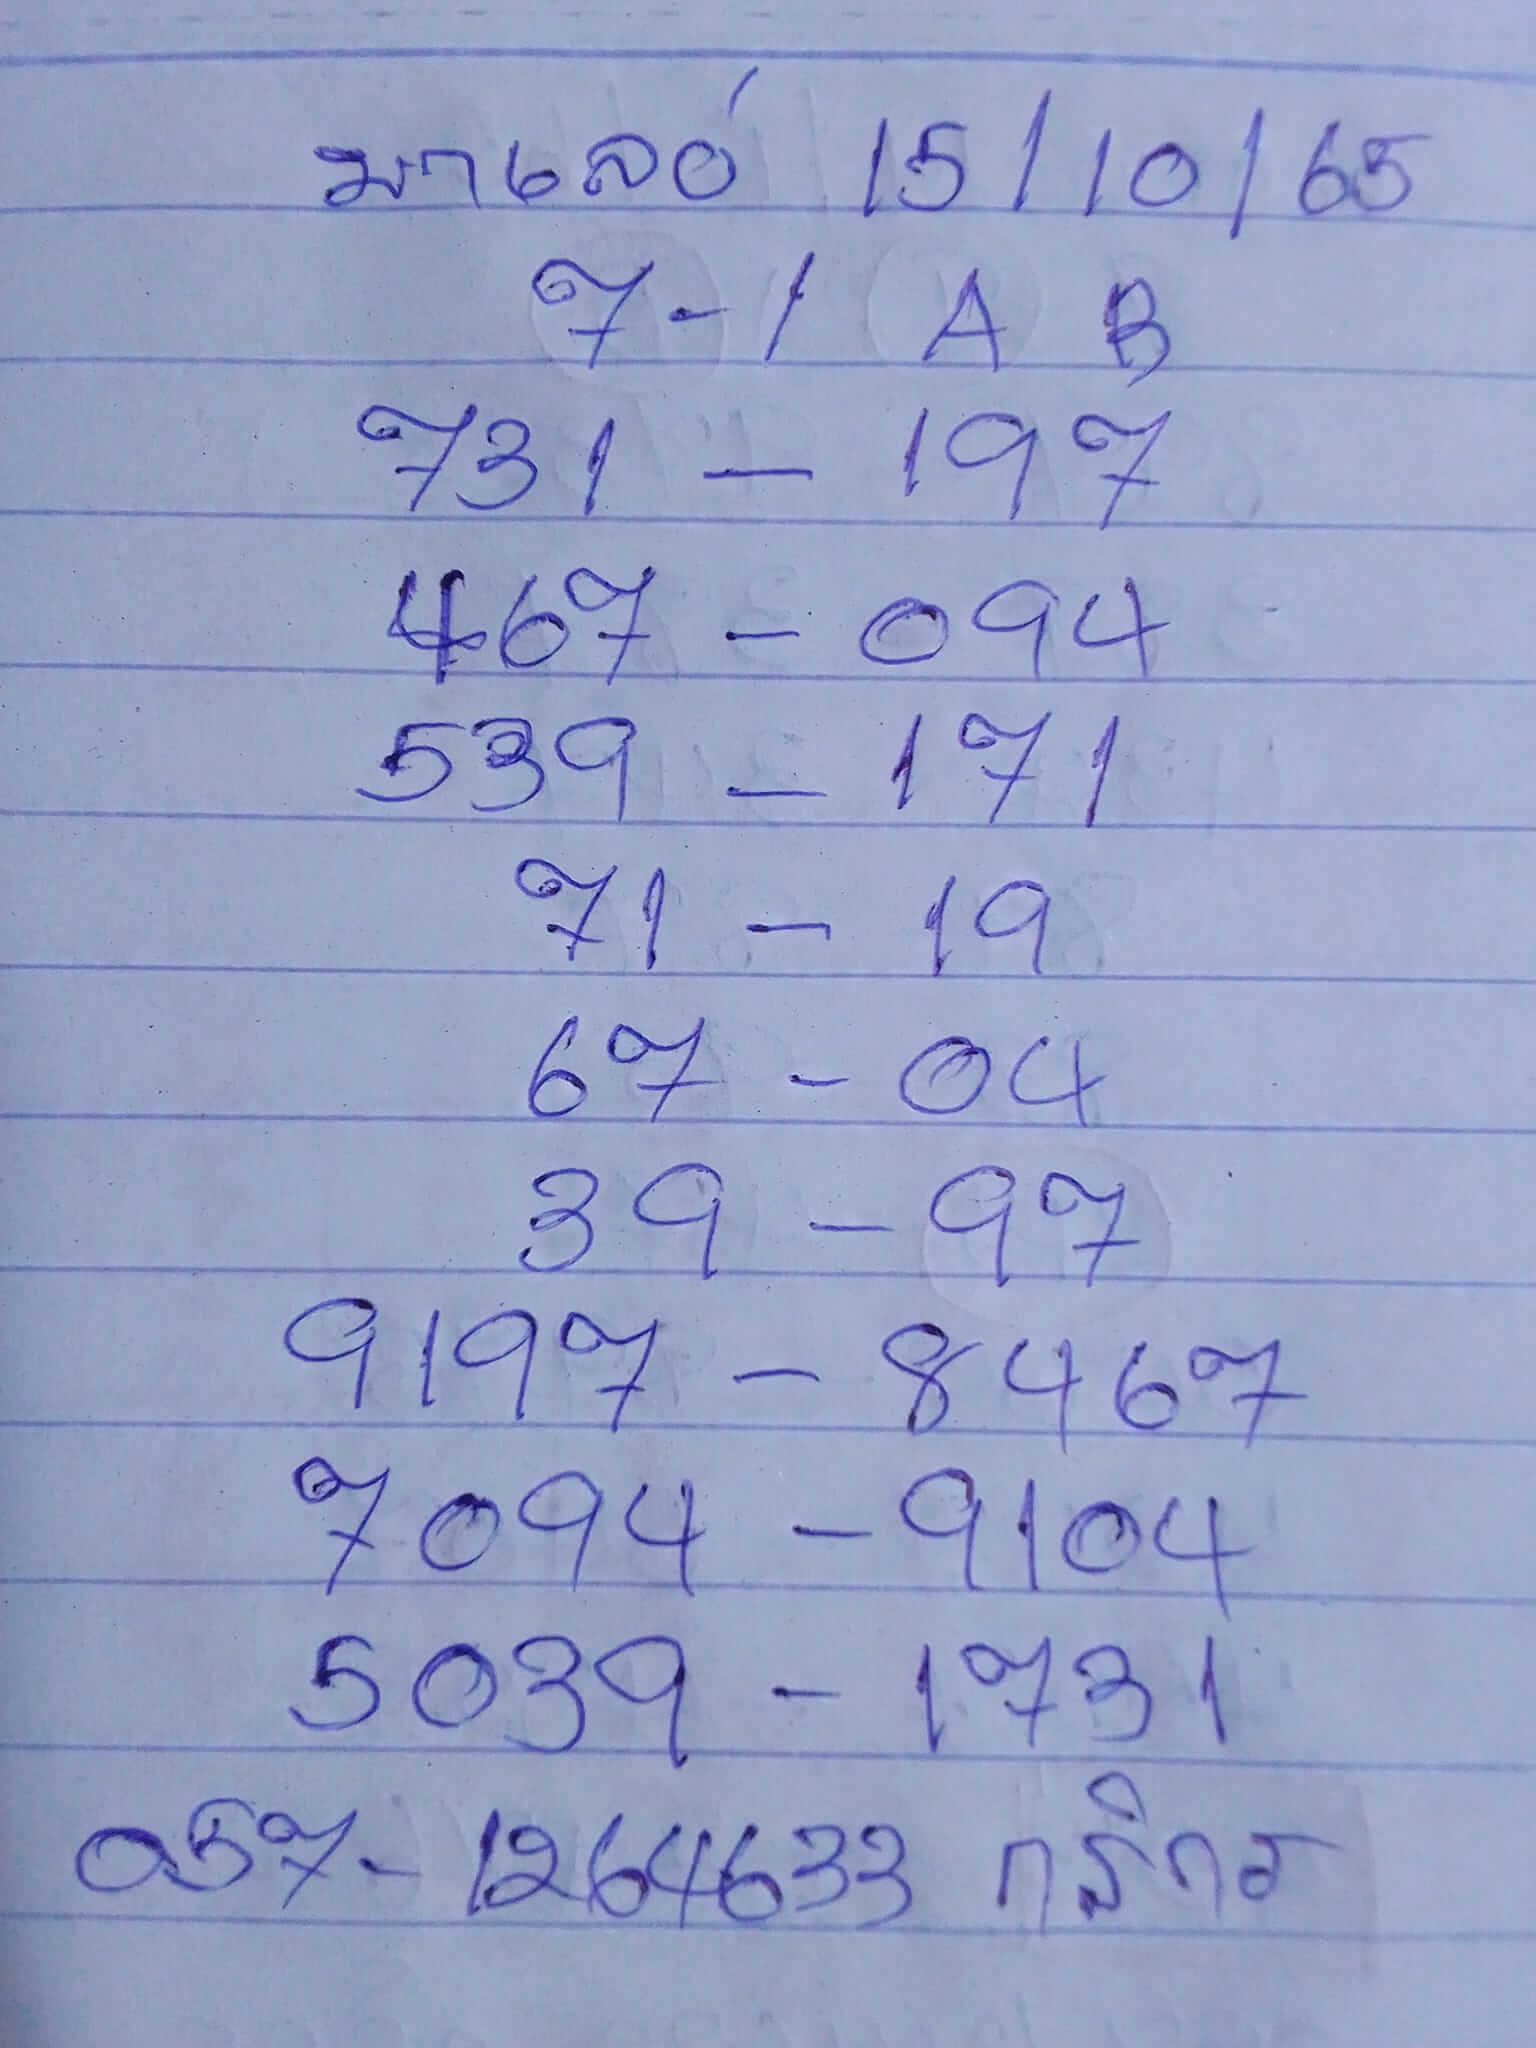 มาเลย์ 15/10/65
7-1 A B
731 - 197
467 - 094
539 - 171
71 - 19
67 - 04
39 - 97
9197 - 8467
7094 - 9104
5039 - 1731
057-1264633